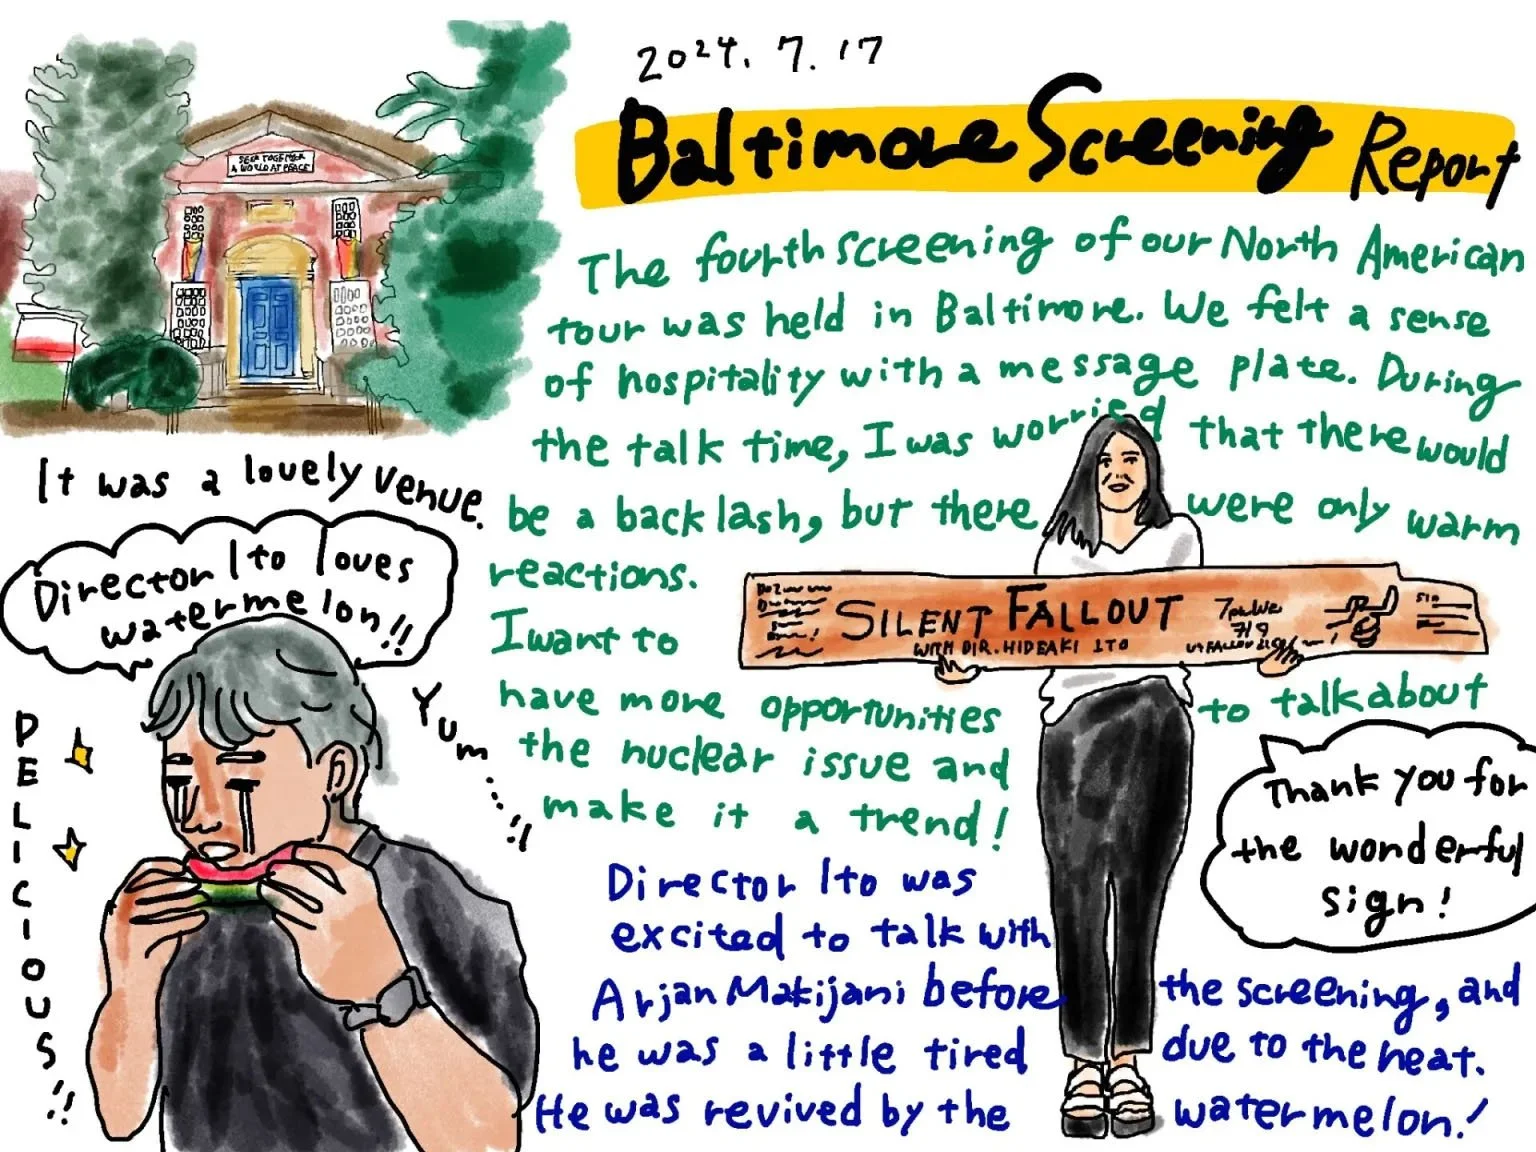 2024. 7. 17
Baltimore Screening Report
The fourth screening of our North American
tour was held in Baltimore. We felt a sense
of hospitality with a message plate. During
the talk time, I was worried that there would
be a backlash, but there were only warm
reactions.
I want to
have more opportunities to talk about
the nuclear issue and
make it a trend!
Director Ito was
excited to talk with
Arjan Makijani before the screening, and
he was a little tired due to the heat.
He was revived by the watermelon!
A WORLD AT PEACE
It was a lovely venue.
Director Ito loves
watermelon!!
DELICIOUS!!
Yum...!!
SILENT FALLOUT
WITH DIR. HIDEAKI ITO
Thank you for
the wonderful
sign!